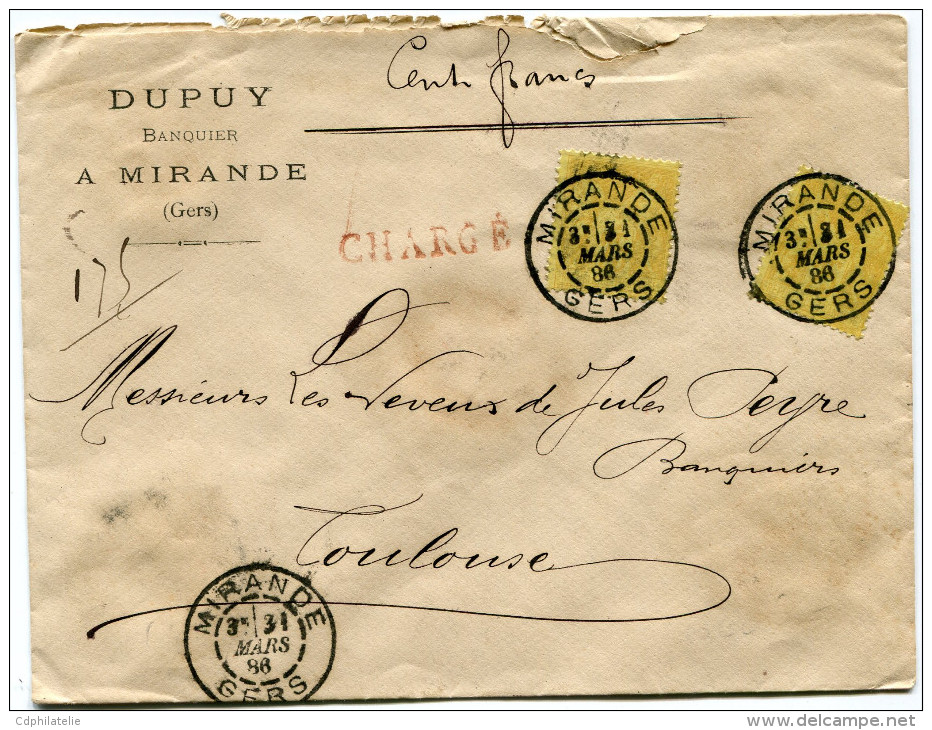 Cent francs
DUPUY
BANQUIER
A MIRANDE
(Gers)
CHARGÉ
175
MIRANDE
3E 31
MARS
86
GERS
MIRANDE
3E 31
MARS
86
GERS
Messieurs Les Neveux de Jules Peyre
Banquiers
Toulouse
MIRANDE
3E 31
MARS
86
GERS
Cdphilatelie
www.delcampe.net